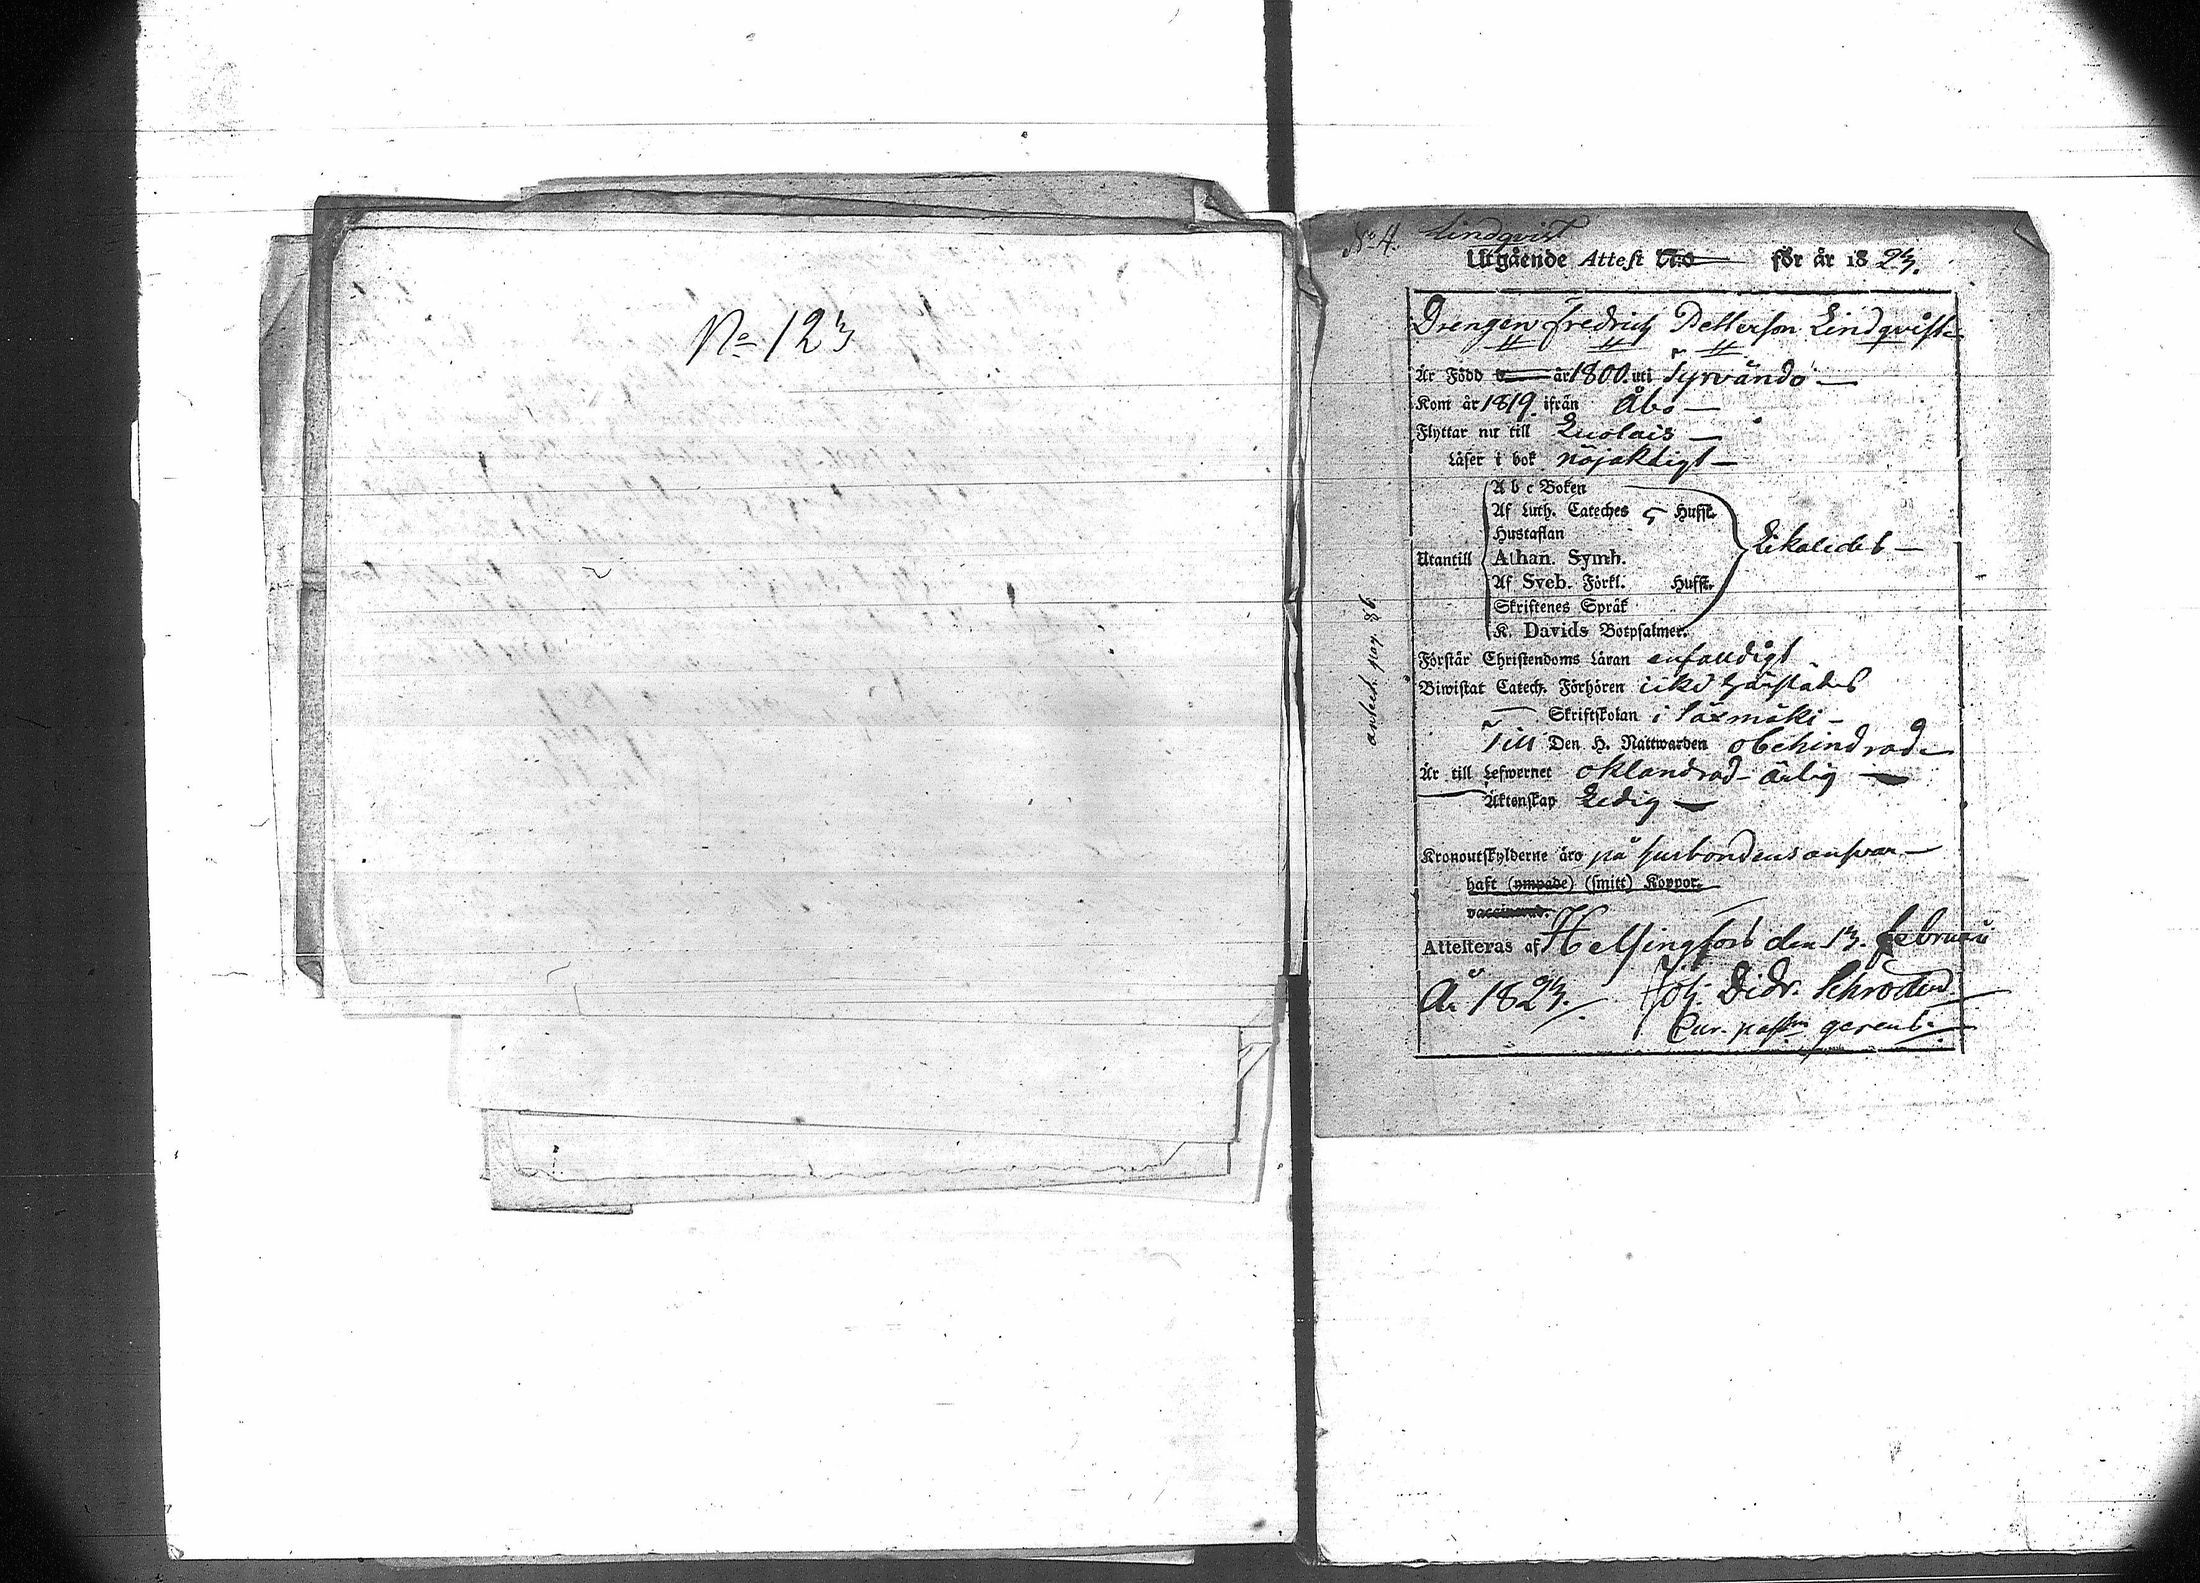 No 123
No 4. Lindqvist
Utgående Attest No för år 1823.
Drengen Fredrich Petterson Lindqvist
Är Född d år 1800. uti Tyrvändö
Kom år 1819. ifrån Åbo
Flyttar nu till Luolais
Läser i bok nöjaktigt
A b c Boken
Af Luth. Cateches 5 Hufst.
Hustaflan
Utantill Athan. Symb. Likaledes
Af Sveb. Förkl. Hufst.
Skriftenes Språk
K. Davids Botpsalmer.
Förstår Christendoms Läran enfaldigt
Biwistat Catech. Förhören icke härstädes
Skriftskolan i Säxmäki
Till Den H. Nattwarden obehindrad
Är till Lefwernet oklandrad ärlig
Äktenskap Ledig
Kronoutskylderne äro på husbondens ansvar
haft (ympade) (smitt) Koppor.
vaccinerad.
Attesteras af Helsingfors den 13. Februarii
År 1823. Joh. Didr. Schroderus
Cur. past. gerens.
anteck. pag. 86.